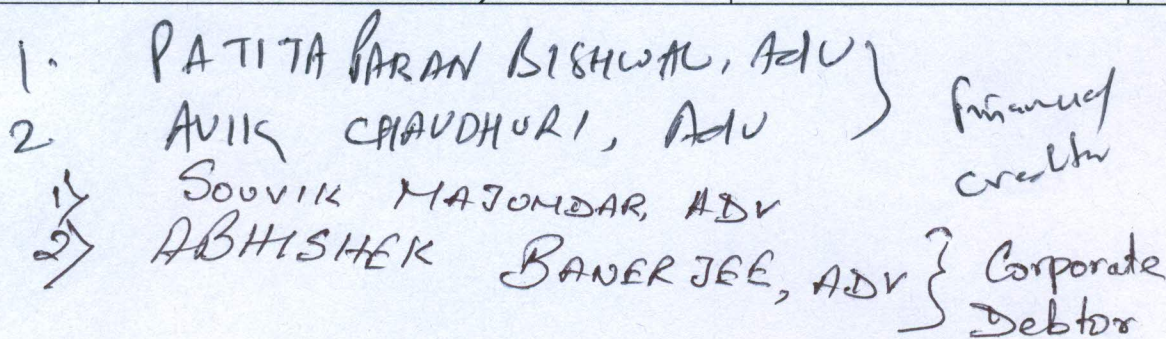 1. PATITA PARAN BISHWAL, Adv } Financial
2 AVIK CHAUDHURI, Adv creditor
1) SOUVIK MAJUMDAR, ADV
2) ABHISHEK BANERJEE, ADV } Corporate
Debtor